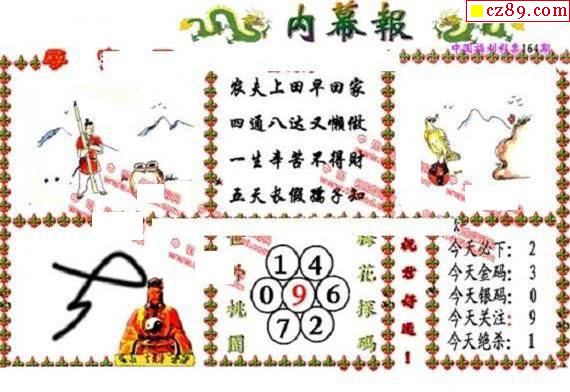 cz89.com
内幕報
中国福利彩票164期
农夫上田早回家
四通八达又懒做
一生辛苦不得財
五天长假孺子知
桃園
1 4
0 9 6
7 2
梅花探码
祝君好运!
今天必下:2
今天金码:3
今天银码:0
今天关注:9
今天绝杀:1